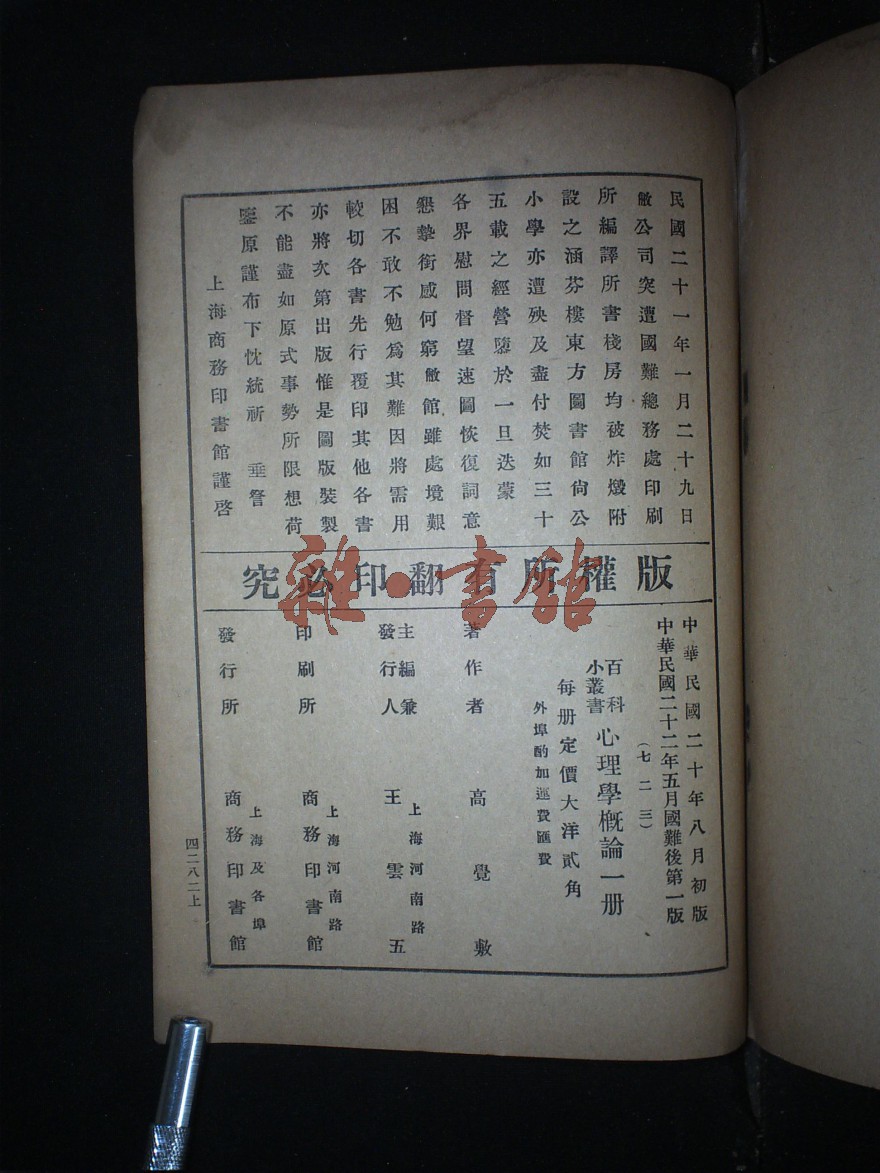 民國二十一年一月二十九日
敝公司突遭國難總務處印刷
所編譯所書棧房均被炸燬附
設之涵芬樓東方圖書館尚公
小學亦遭殃及盡付焚如三十
五載之經營隳於一旦迭蒙
各界慰問督望速圖恢復詞意
懇摯銜感何窮敝館雖處境艱
困不敢不勉爲其難因將需用
較切各書先行覆印其他各書
亦將次第出版惟是圖版裝製
不能盡如原式事勢所限想荷
鑒原謹布下忱統祈 垂詧
上海商務印書館謹啓
版權所有翻印必究
雜·書館
中華民國二十年八月初版
中華民國二十二年五月國難後第一版
(七二三)
百科小叢書 心理學概論一册
每册定價大洋貳角
外埠酌加運費匯費
著作者 高覺敷
主編兼發行人 上海河南路 王雲五
印刷所 上海河南路 商務印書館
發行所 上海及各埠 商務印書館
四二八二上